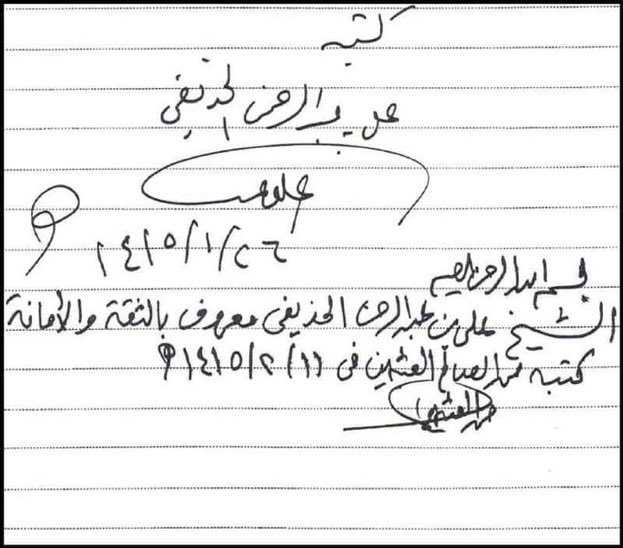 كتبه
علي عبد الرحمن الحذيفي
١٤١٥/١/٢٦
بسم الله الرحمن الرحيم
الشيخ علي بن عبدالرحمن الحذيفي معروف بالثقة والأمانة
كتبه محمد الصالح العثيمين في ١٤١٥/٢/١١